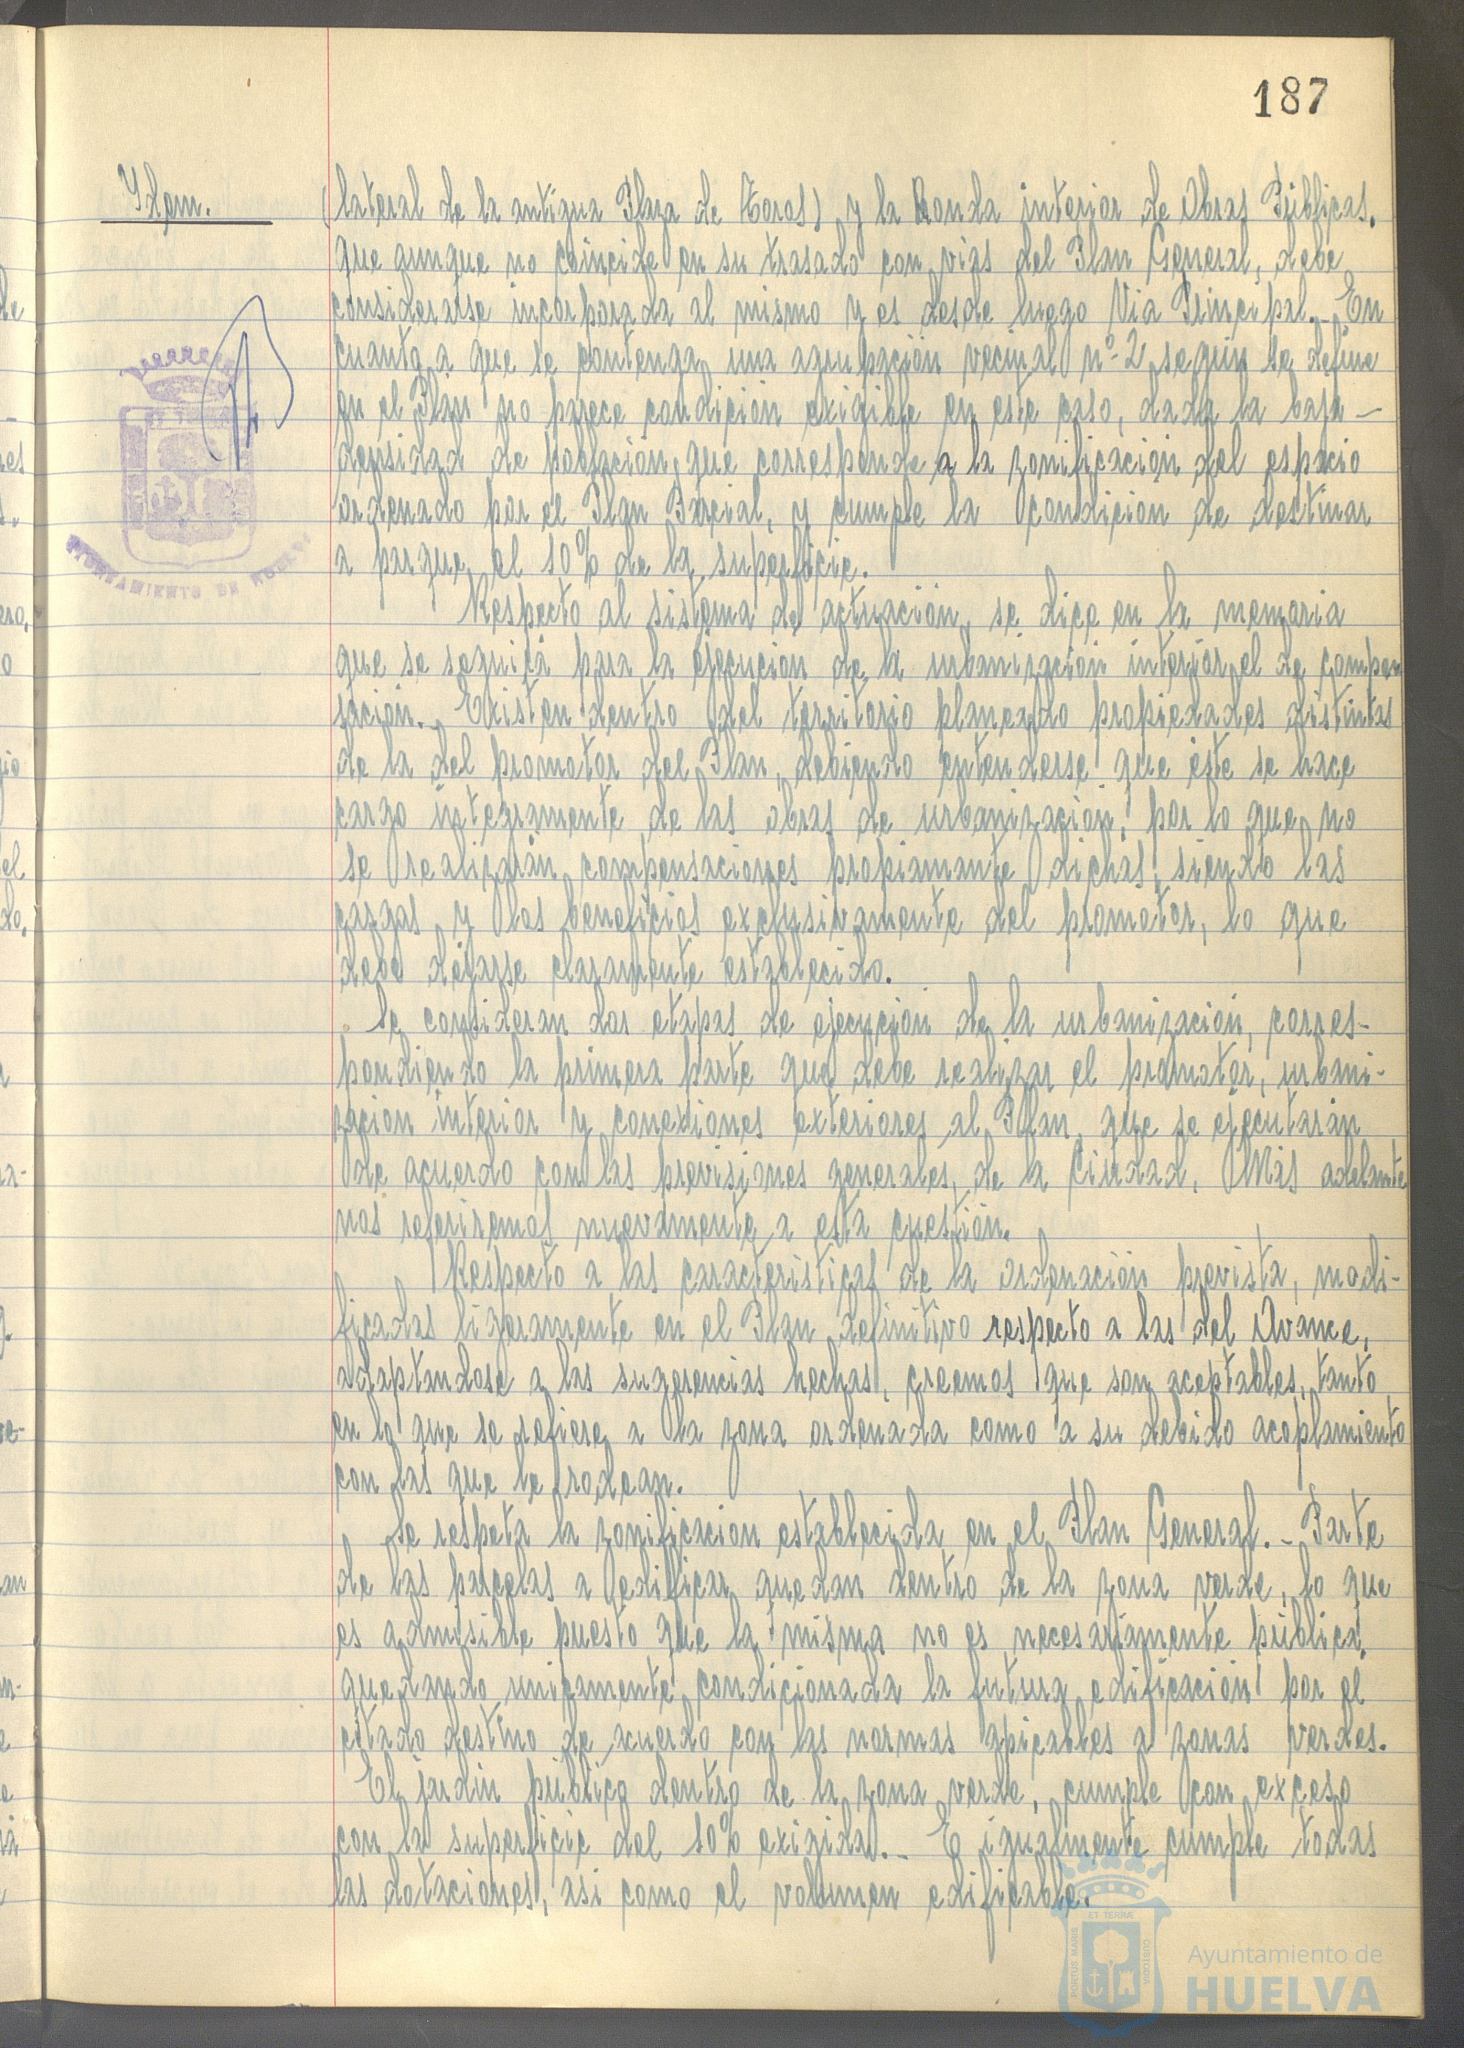 187
Ydem.
(lateral de la antigua Plaza de Toros) y la Ronda interior de Obras Públicas,
que aunque no coincide en su trasado con vias del Plan General, debe
considerarse incorporada al mismo y es desde luego Via Principal.- En
cuanto a que se contenga una agrupación vecinal nº 2 según se define
en el Plan no parece condición exigible en este caso, dada la baja-
densidad de población, que corresponde a la zonificación del espacio
ordenado por el Plan Parcial, y cumple la condición de destinar
a parque el 10% de la superficie.
Respecto al sistema de actuación, se dice en la memoria
que se seguirá para la ejecución de la urbanización interior el de compen
sación.- Existen dentro del territorio planeado propiedades distintas
de la del promotor del Plan, debiendo entenderse que éste se hace
cargo integramente de las obras de urbanización, por lo que no
se realizarán compensaciones propiamante dichas, siendo las
cargas y los beneficios exclusivamente del promotor, lo que
debe dejarse claramente establecido.
Se consideran dos etapas de ejecución de la urbanización, corres-
pondiendo la primera parte que debe realizar el promotor, urbani-
zación interior y conexiones exteriores al Plan, que se ejecutarán
de acuerdo con las previsiones generales, de la Ciudad, Más adelante
nos referiremos nuevamente a esta cuestión.
Respecto a las caracteristicas de la ordenación prevista, modi-
ficadas ligeramente en el Plan definitivo respecto a las del Avance,
adaptandose a las sugerencias hechas, creemos que son aceptables, tanto
en lo que se refiere a la zona ordenada como a su debido acoplamiento
con las que le rodean.
Se respeta la zonificación establecida en el Plan General.- Parte
de las parcelas a edificar quedan dentro de la zona verde, lo que
es admisible puesto que la misma no es necesariamente pública,
quedando unicamente condicionada la futura edificación por el
citado destino de acuerdo con las normas apicables a zonas verdes.
El jardin público dentro de la zona verde, cumple con exceso
con la superficie del 10% exigida.- E igualmente cumple todas
las dotaciones, asi como el volumen edificable.
AYUNTAMIENTO DE HUELVA
PORTUS MARIS ET TERRÆ CUSTODIA
Ayuntamiento de
HUELVA